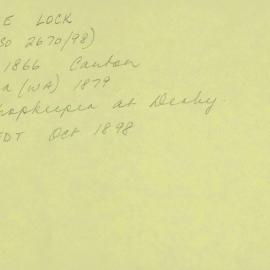 E LOCK
SO 2670/98)
1866 Canton
a (WA) 1879
hopkeeper at Derby.
EDT Oct 1898